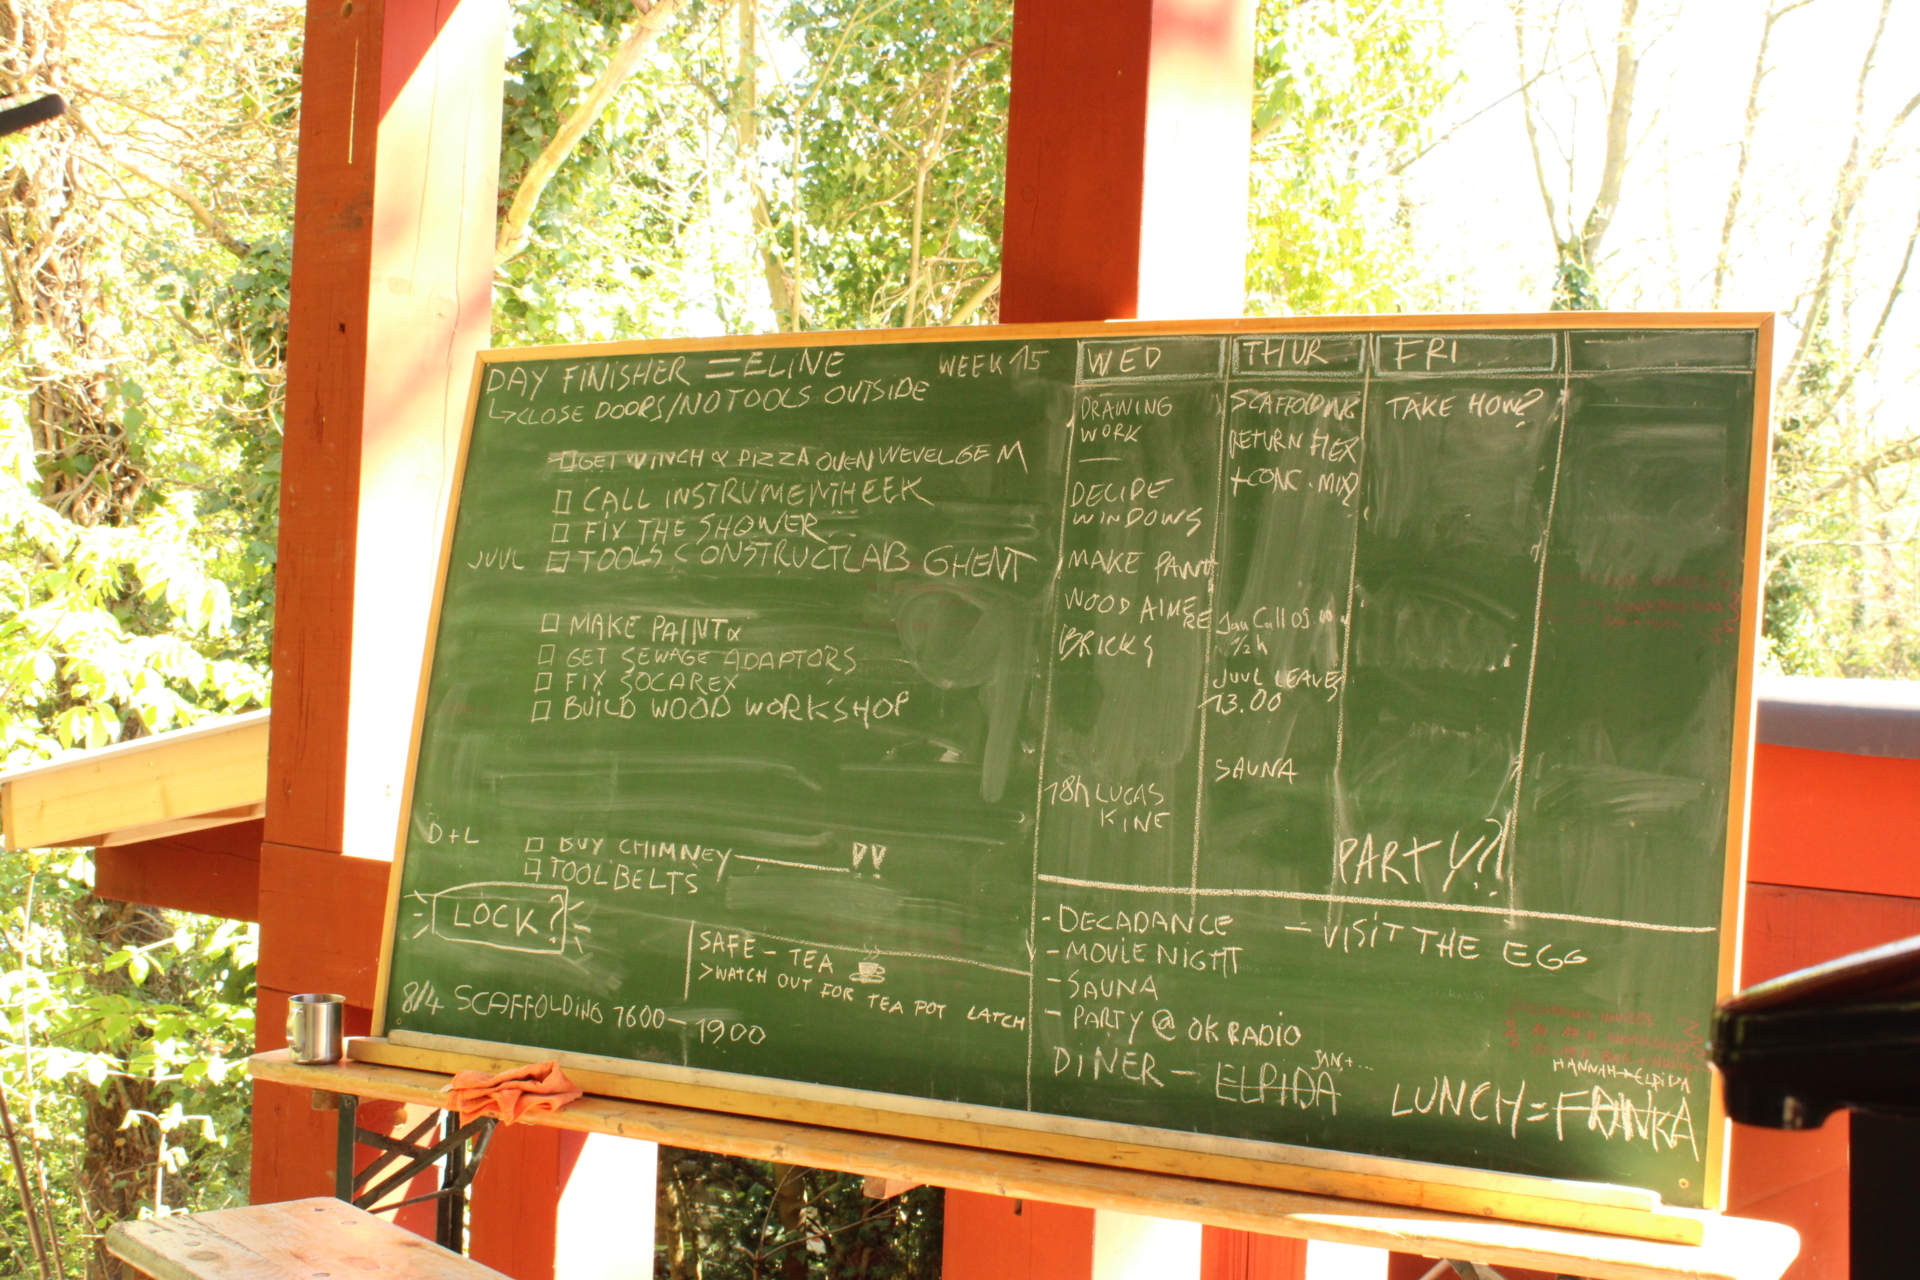 DAY FINISHER = ELINE
WEEK 15
↳CLOSE DOORS/NO TOOLS OUTSIDE
GET WINCH & PIZZA OVEN WEVELGEM
CALL INSTRUMENTHEEK
FIX THE SHOWER
JUUL
TOOLS CONSTRUCTLAB GHENT
MAKE PAINT
GET SEWAGE ADAPTORS
FIX SOCAREX
BUILD WOOD WORKSHOP
D+L
BUY CHIMNEY !!
TOOLBELTS
LOCK?
SAFE - TEA
>WATCH OUT FOR TEA POT LATCH
8/4 SCAFFOLDING 1600 - 1900
WED
DRAWING
WORK
—
DECIDE
WINDOWS
MAKE PAINT
WOOD AIMERE
BRICKS
18h LUCAS
KINE
THUR
SCAFFOLDING
RETURN FLEX
+CONC. MIX?
Jan Call
1/2 h
JUUL LEAVES
13.00
SAUNA
FRI
TAKE HOW?
PARTY?!
- DECADANCE
- MOVIE NIGHT
- SAUNA
- PARTY @ OK RADIO
- VISIT THE EGG
DINER - ELPIDA
JAN,+...
HANNAH+ELPIDA
LUNCH=FRANKA